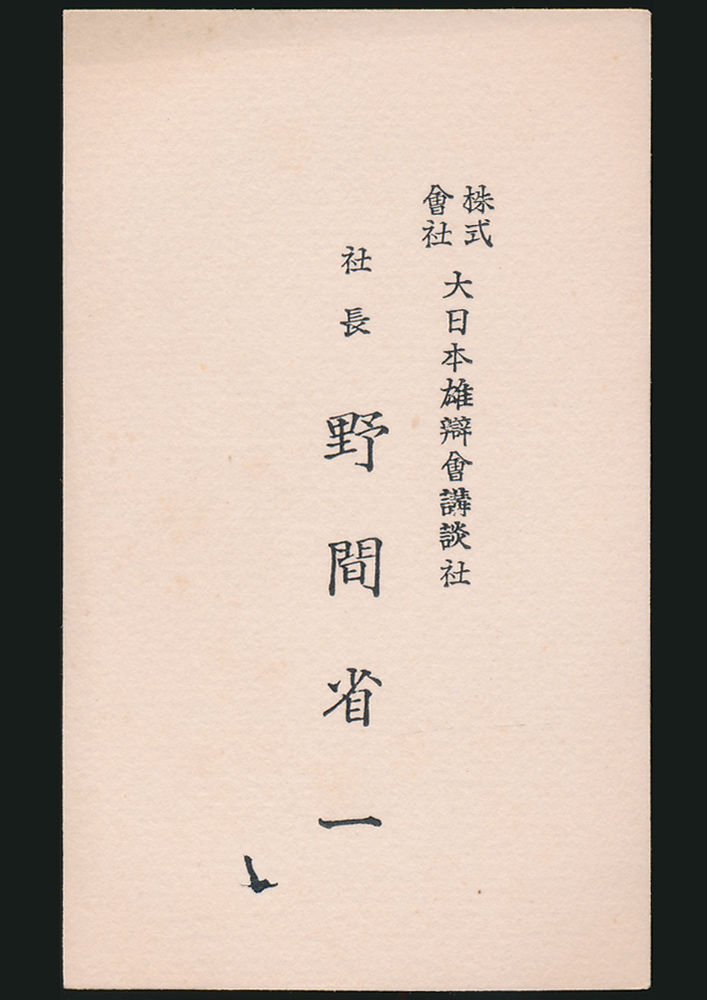 株式會社 大日本雄辯會講談社
社長 野間省一